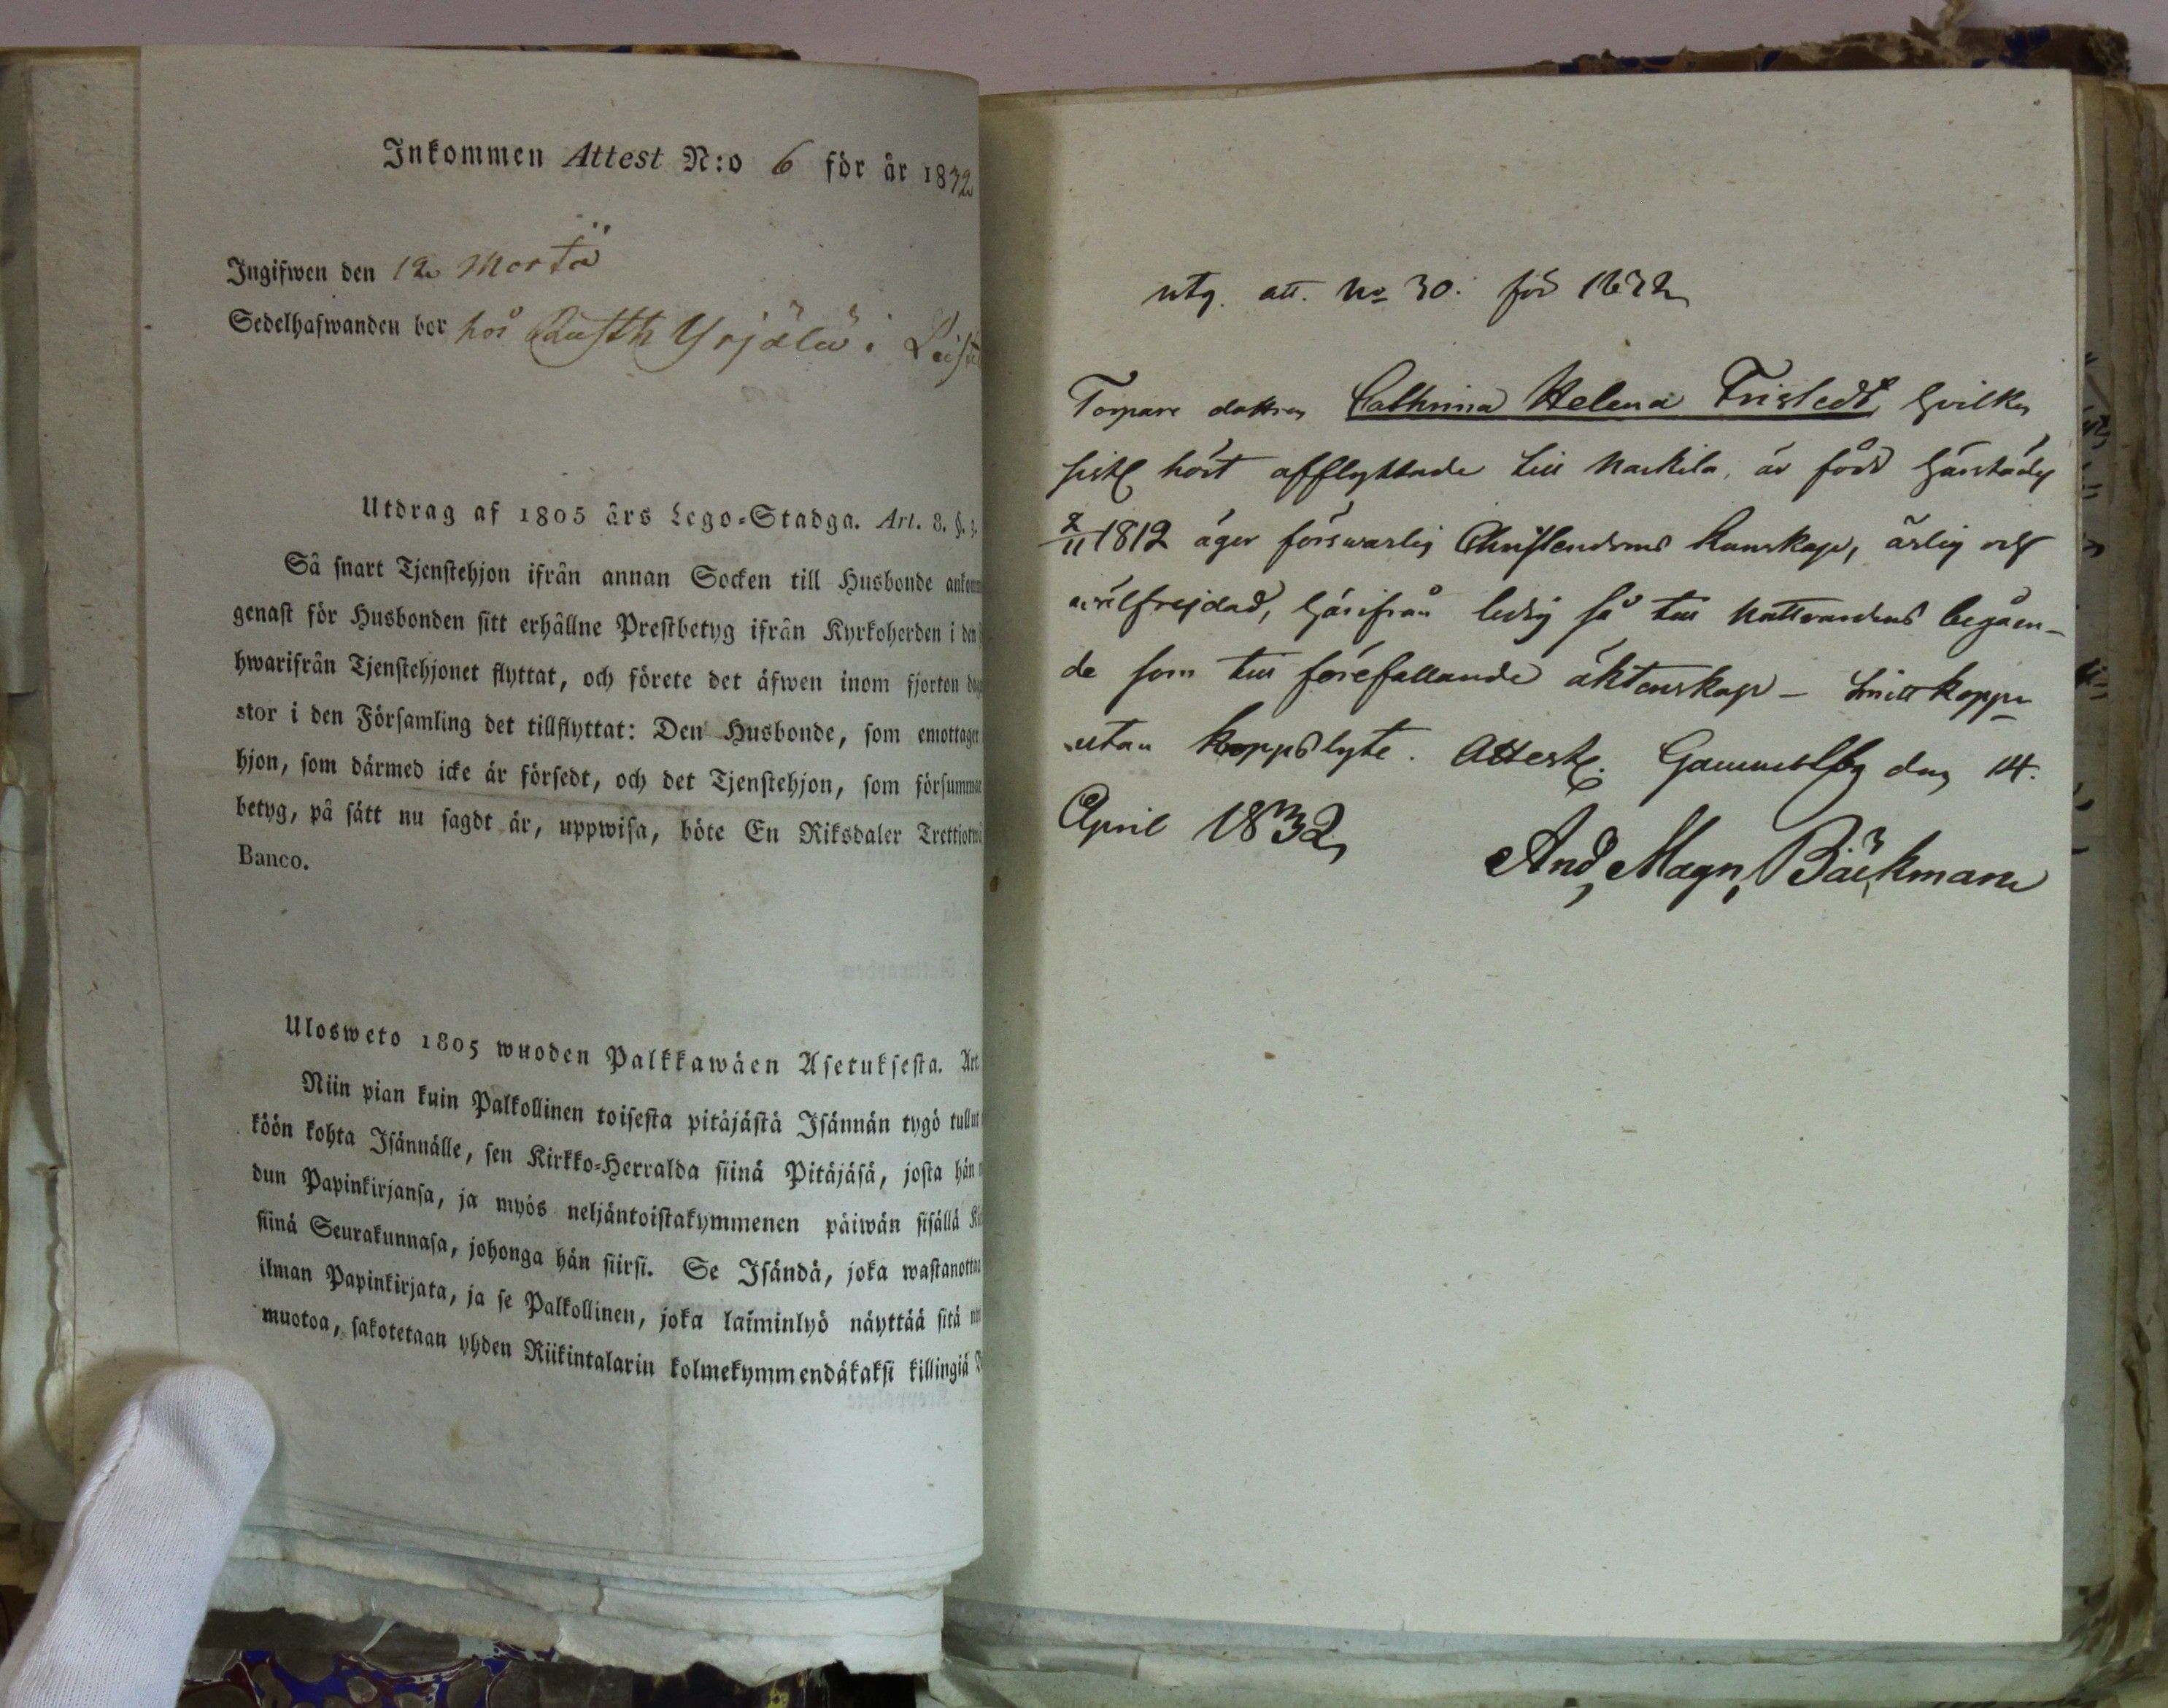 Inkommen Attest N:o 6 för år 1832
Ingifwen den 12
Sedelhafwanden bor hos Rusth Yrjälä i
Utdrag af 1805 års Lego-Stadga. Art. 8. §.
Så snart Tjenstehjon ifrån annan Socken till Husbonde
genast för Husbonden sitt erhållne Prestbetyg ifrån Kyrkoherden i den
hwarifrån Tjenstehjonet flyttat, och förete det äfwen inom fjorton
stor i den Församling det tillflyttat: Den Husbonde, som emottager
hjon, som därmed icke är försedt, och det Tjenstehjon, som försummar
betyg, på sätt nu sagdt är, uppwisa, böte En Riksdaler
Banco.
Ulosweto 1805 wuoden Palkkawäen Asetuksesta. Art.
Niin pian kuin Palkollinen toisesta pitäjästä Isännän tygö tullut
köön kohta Isännälle, sen Kirkko-Herralda siinä Pitäjäsä, josta hän
dun Papinkirjansa, ja myös neljäntoistakymmenen päiwän sisällä
siinä Seurakunnasa, johonga hän siirsi. Se Isändä, joka
ilman Papinkirjata, ja se Palkollinen, joka laiminlyö näyttää sitä
muotoa, sakotetaan yhden Riikintalarin kolmekymmendäkaksi killingiä
utg. att. No 30. för 1832
Torpare dottren Cathrina Helena Fristedt, hvilken
sist hört afflyttade till Nackila, är född härstädes
2/11 1812 äger förswarlig Christendoms kunskap, ärlig och
wälfrejdad, härifrån ledig så till Nattvardens begåen-
de som till förefallande äktenskap –
utan koppslyte. Attest. den 14.
April 1832,
And, Magn, Bäckman